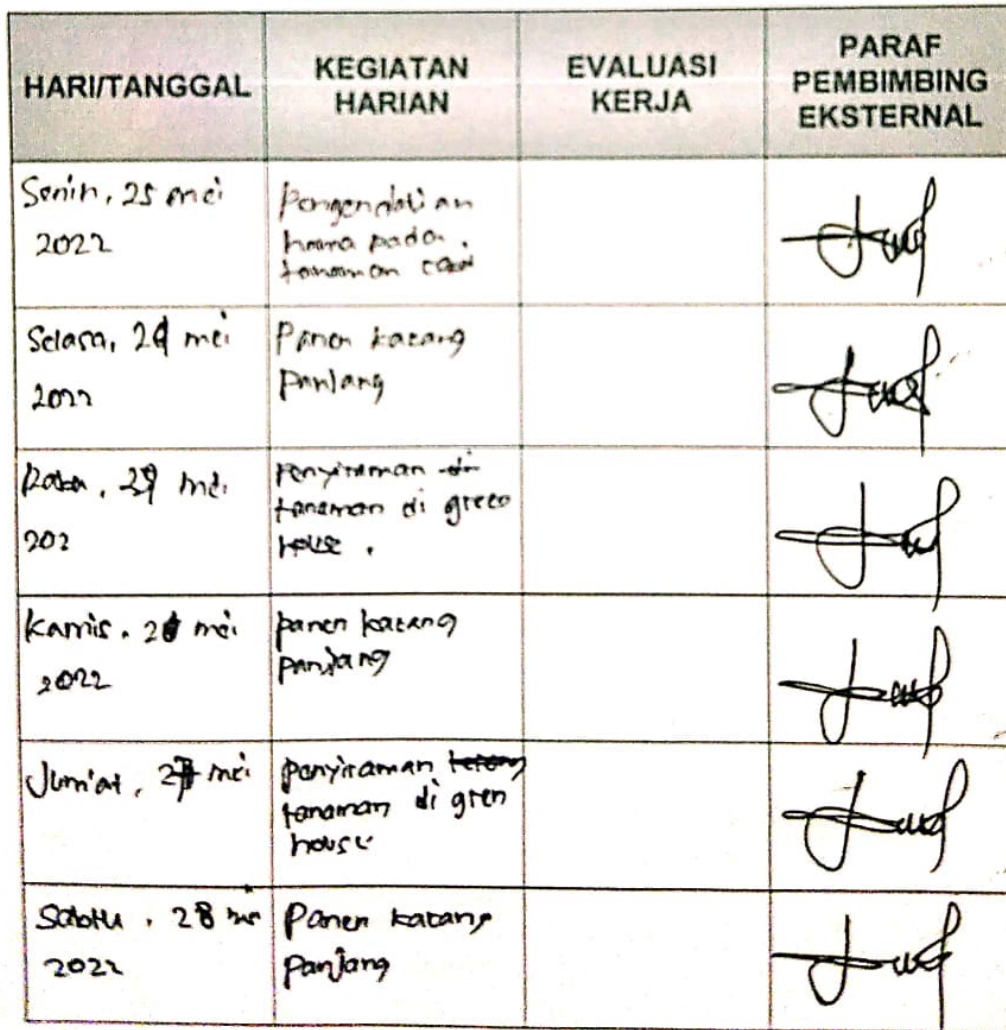 HARI/TANGGAL
KEGIATAN
HARIAN
EVALUASI
KERJA
PARAF
PEMBIMBING
EKSTERNAL
Senin, 25 mei
2022
Pengendalian
hama pada
tanaman
Selasa, 24 mei
2022
Panen kacang
Panjang
Rabu, mei
202
Penyiraman
tanaman di green
house.
Kamis, mei
2022
panen kacang
panjang
Jum'at, 27 mei
penyiraman terong
tanaman di gren
house
Sabtu, 28 mei
2022
Panen kacang
panjang